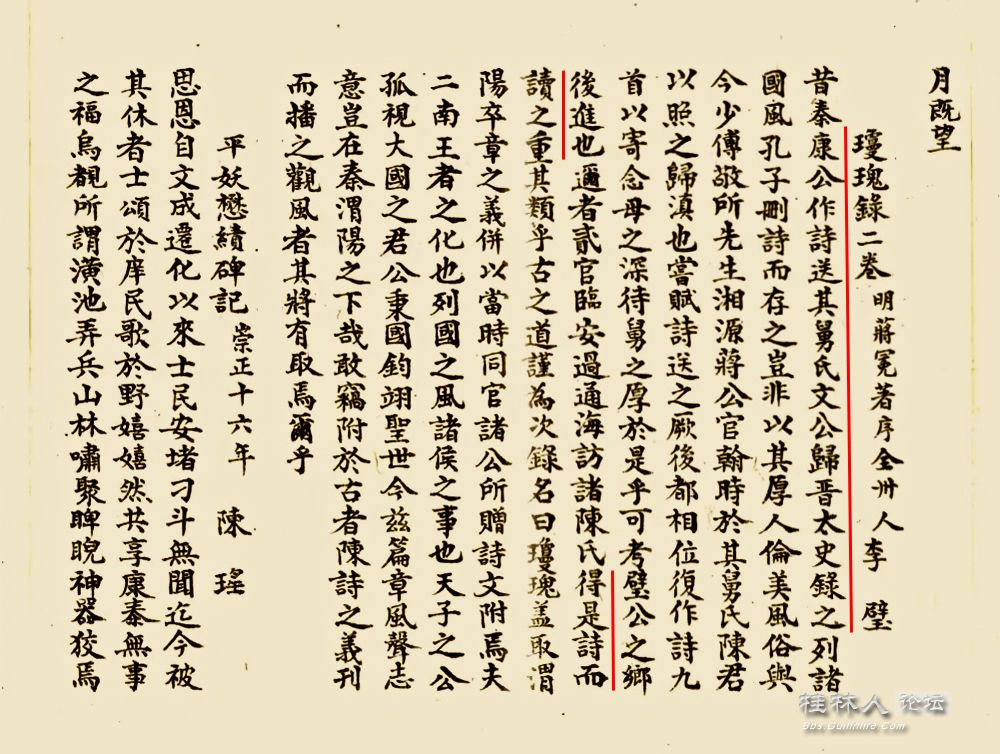 月既望
瓊瑰錄二卷 明蔣冕著序全州人李璧
昔秦康公作詩送其舅氏文公歸晋太史錄之列諸
國風孔子刪詩而存之豈非以其厚人倫美風俗與
今少傅敬所先生湘源蔣公官翰時於其舅氏陳君
以照之歸滇也嘗賦詩送之厥後都相位復作詩九
首以寄念母之深待舅之厚於是乎可考璧公之鄉
後進也邇者貳官臨安過通海訪諸陳氏得是詩而
讀之重其類乎古之道謹為次錄名曰瓊瑰盖取渭
陽卒章之義併以當時同官諸公所贈詩文附焉夫
二南王者之化也列國之風諸侯之事也天子之公
孤視大國之君公秉國鈞翊聖世今兹篇章風聲志
意豈在秦渭陽之下哉敢竊附於古者陳詩之義刊
而播之觀風者其將有取焉爾乎
平妖懋績碑記 崇正十六年 陳瑤
思恩自文成遷化以來士民安堵刁斗無聞迄今被
其休者士頌於庠民歌於野嬉嬉然共享康泰無事
之福烏覩所謂潢池弄兵山林嘯聚睥睨神器狡焉
桂林人论坛
Bbs.Guilinlife.Com